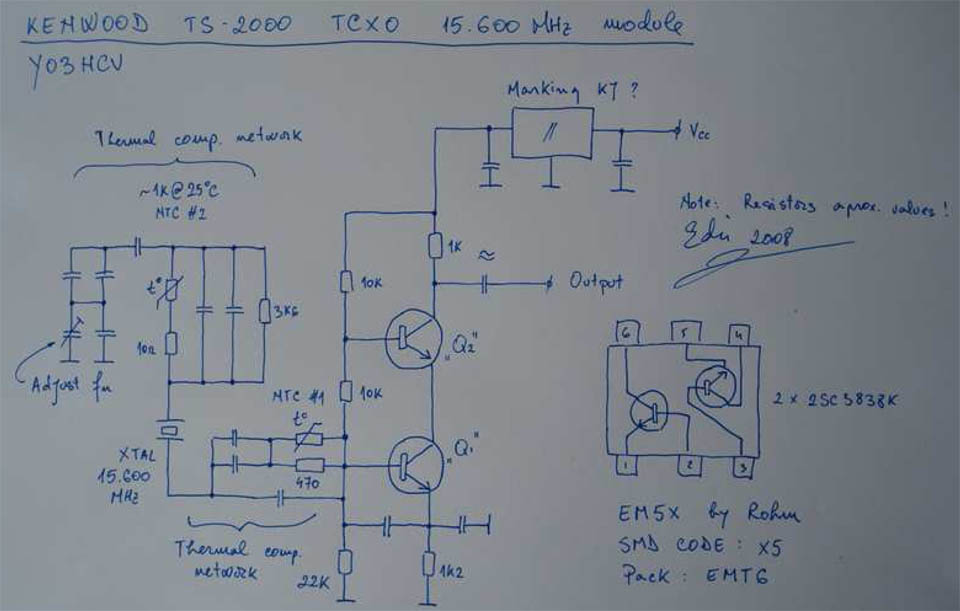 KENWOOD TS-2000 TCXO 15.600 MHz module
YO3HCV
Marking K7 ?
Vcc
Thermal comp. network
~1K@25°C
NTC #2
Note: Resistors aprox. values!
Edi 2008
1K
≈
10K
Output
t°
3K6
10Ω
"Q2"
Adjust fn
10K
NTC #1
t°
"Q1"
470
XTAL
15.600
MHz
Thermal comp.
network
22K
1K2
6 5 4
2 x 2SC3838K
1 2 3
EM5X by Rohm
SMD CODE: X5
Pack: EMT6